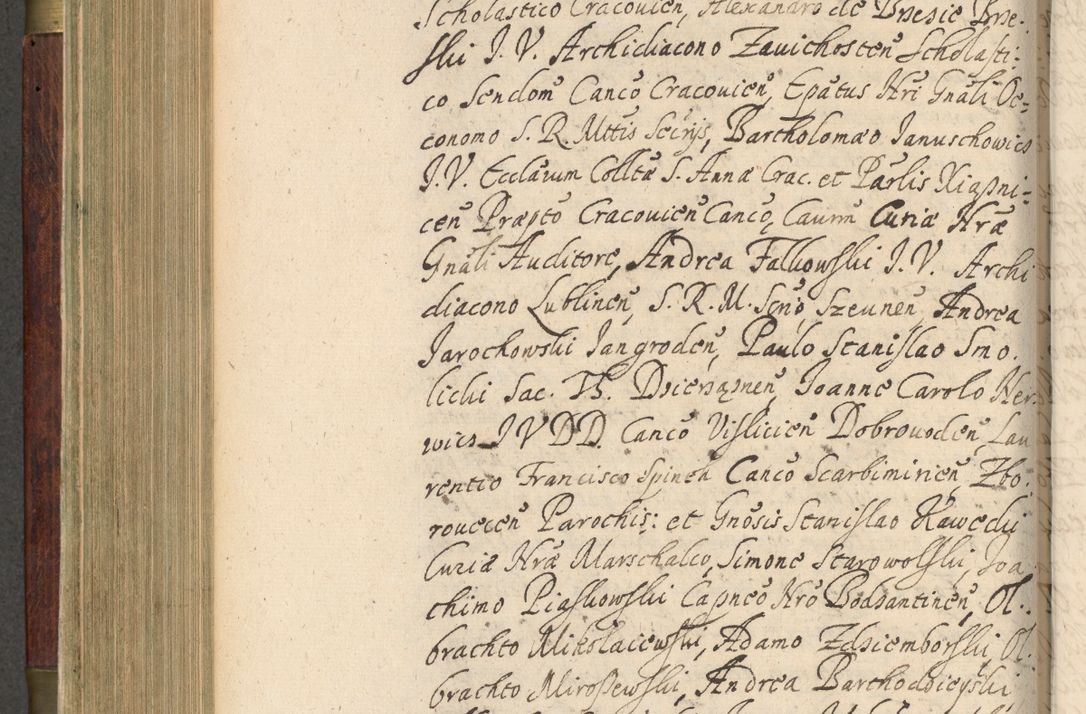 Scholastico Cracovien, Alexandro de Brzezie Brze:
ski J. V. Archidiacono Zavichosten Scholasti:
co Sendom Canco Cracovien, Epatus Nri Gnali Oe=
conomo S. R. Mttis Secrijs, Bartholomæo Januschowicz
J. V. Ecclarum Colltæ S. Annæ Crac. et Parlis Xiąznі=
cen Præpto Cracovien Canco, Caurm Curiæ Nræ
Gnali Auditore, Andrea Falkowski J. V. Archi
diacono Lublinen, S. R. M. Scrio, Szeunen, Andrea
Jarochowski Jangroden, Paulo Stanislao Smo.
licki Sac. Th. Dzierząznen, Joanne Carolo Her
wicz J V D D. Canco Vislicien Dobrovoden, Lau
rentio Francisco Spinek Canco Scarbimirien Zbo:
rovecen Parochis: et Gnosis Stanislao Kawecki
Curiæ Nræ Marschalco, Simone Starowolski, Joa
chimo Piaskowski Capneo Nro Bodzantinen, Ol.
brachto Mikolaiewski, Adamo Zdziemborski, Ol.
brachto Miroszewski, Andrea Barthodzieyski